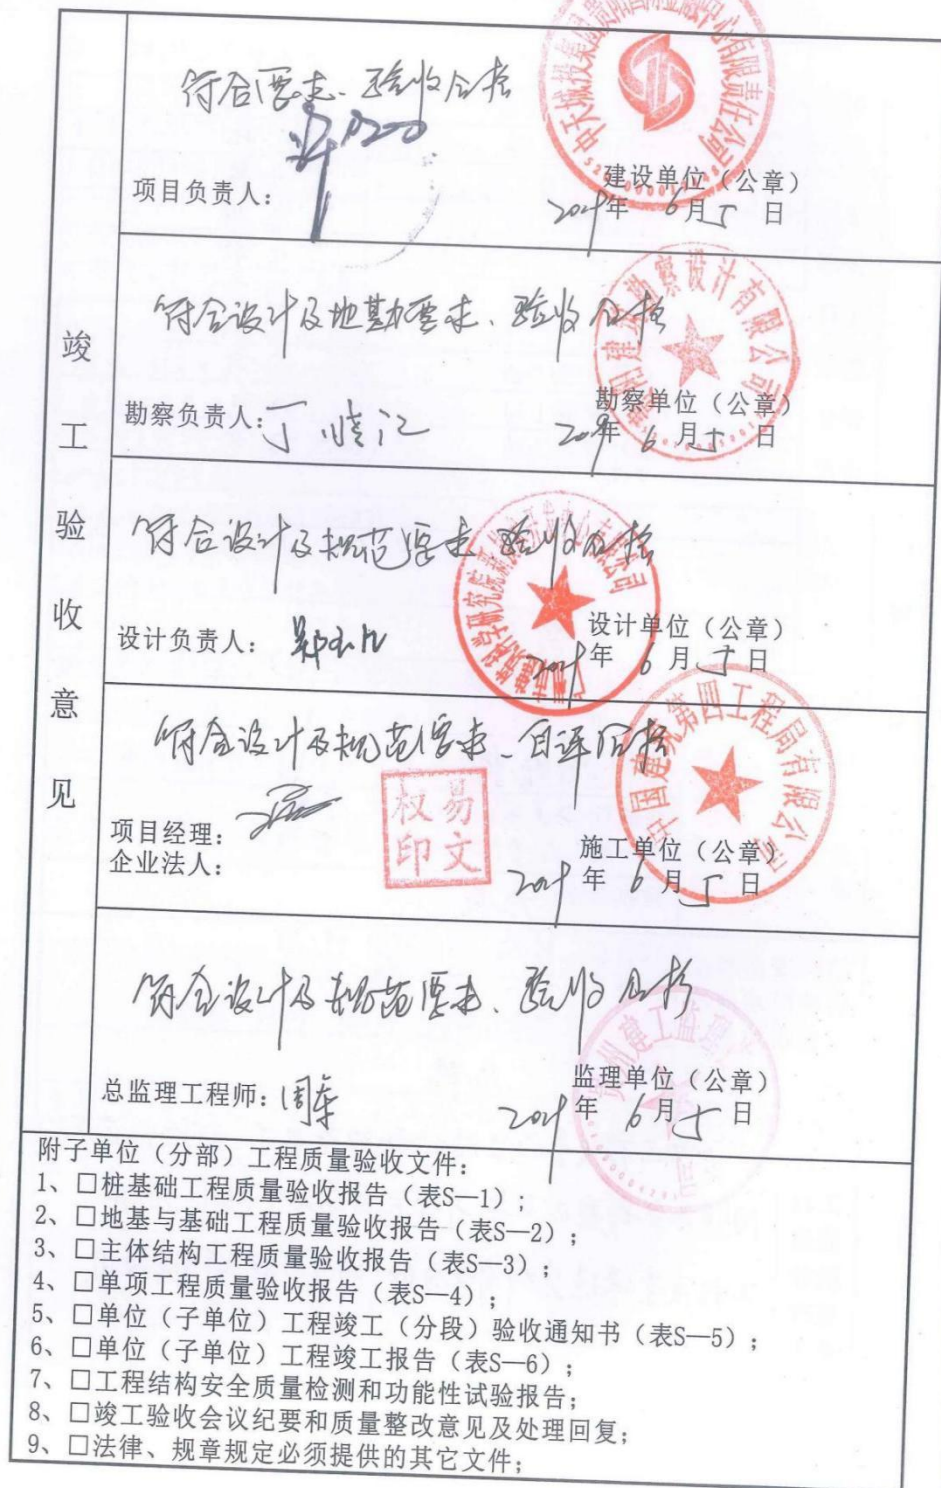 竣工验收意见
符合要求、验收合格
项目负责人：
中天城投集团贵阳国际金融中心有限责任公司
建设单位（公章）
年 6月5日
符合设计及地勘要求、验收合格
勘察负责人：丁
勘察设计有限公司
勘察单位（公章）
年 6月5日
符合设计及规范要求 验收合格
设计负责人：
设计单位（公章）
年 6月5日
符合设计及规范要求、自评合格
项目经理：
企业法人：
易文权印
中国建筑第四工程局有限公司
施工单位（公章）
年 6月5日
符合设计及规范要求、验收合格
总监理工程师：周
贵州建工监理
监理单位（公章）
年 6月5日
附子单位（分部）工程质量验收文件：
1、□桩基础工程质量验收报告（表S—1）；
2、□地基与基础工程质量验收报告（表S—2）；
3、□主体结构工程质量验收报告（表S—3）；
4、□单项工程质量验收报告（表S—4）；
5、□单位（子单位）工程竣工（分段）验收通知书（表S—5）；
6、□单位（子单位）工程竣工报告（表S—6）；
7、□工程结构安全质量检测和功能性试验报告；
8、□竣工验收会议纪要和质量整改意见及处理回复；
9、□法律、规章规定必须提供的其它文件；